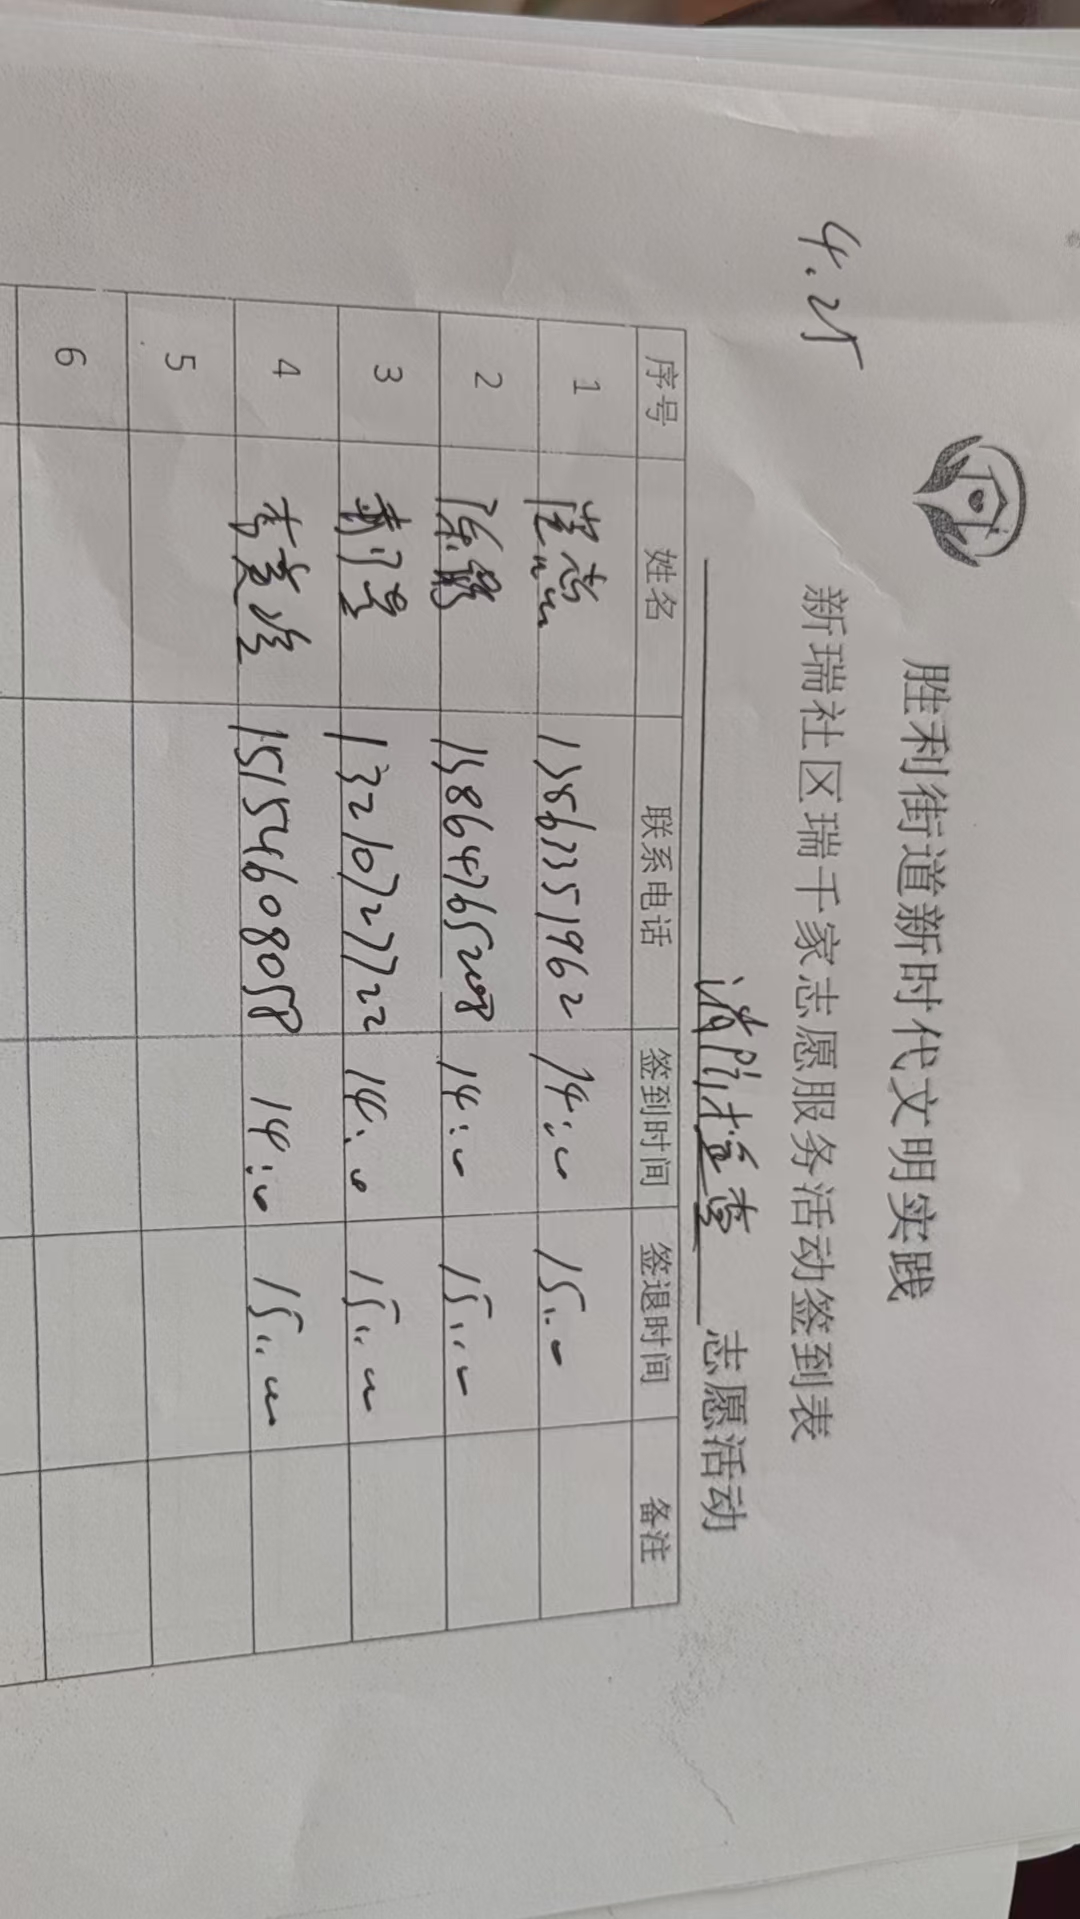 4.25
胜利街道新时代文明实践
新瑞社区瑞千家志愿服务活动签到表
消防检查 志愿活动
序号 姓名 联系电话 签到时间 签退时间 备注
1 14:00 15:00
2 13864765208 14:00 15:00
3 13210727722 14:00 15:00
4 15154608058 14:00 15:00
5
6